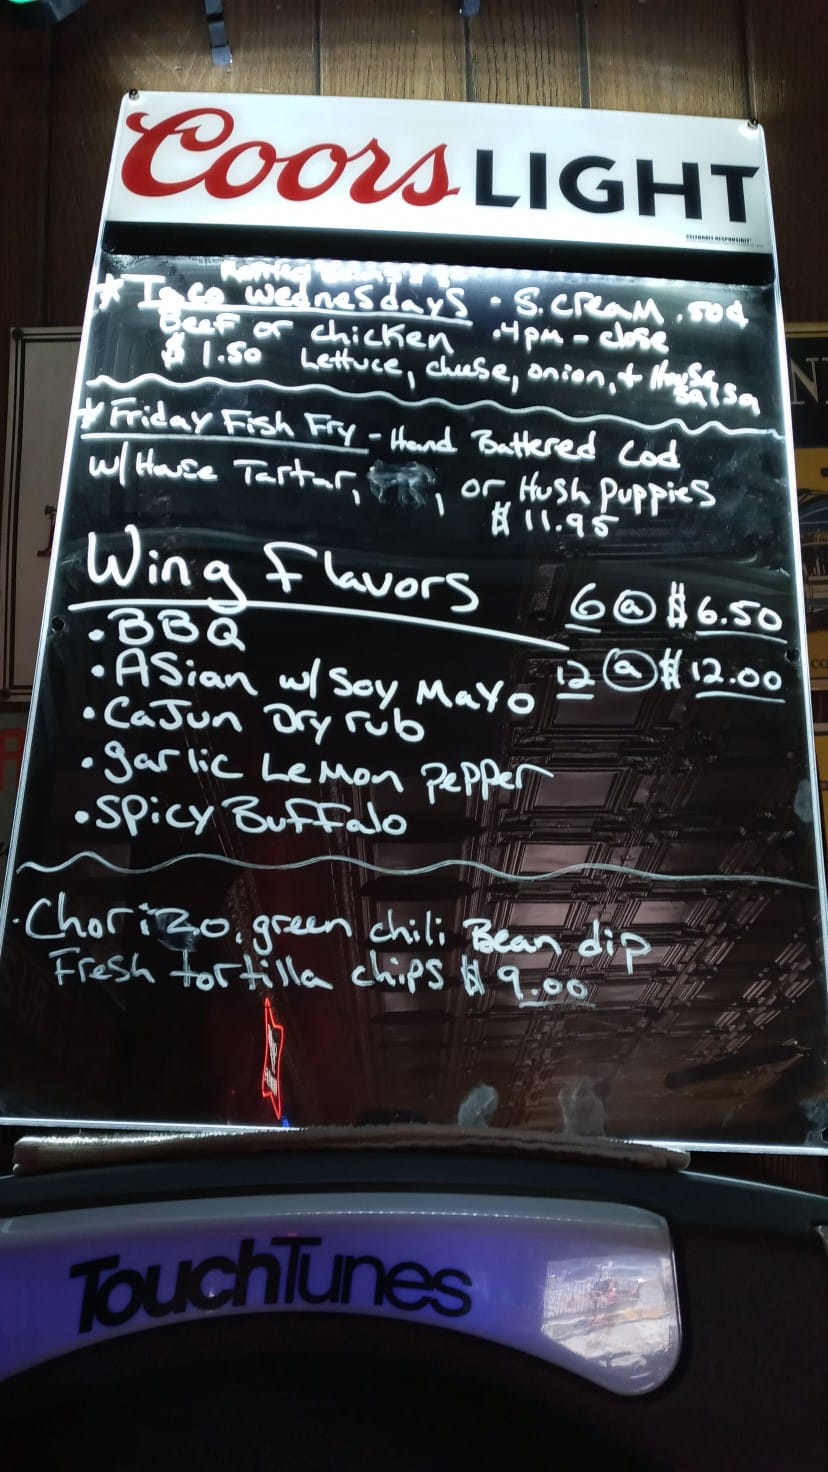 Coors LIGHT
CELEBRATE RESPONSIBLY
★ Taco Wednesdays - S.cream .50¢
Beef or chicken .4pm - close
$ 1.50 Lettuce, cheese, onion, + House
salsa
★ Friday Fish Fry - Hand Battered Cod
w/ House Tartar, , or Hush Puppies
$ 11.95
Wing Flavors
6 @ $ 6.50
• BBQ
• Asian w/ Soy Mayo
12 @ $ 12.00
• Cajun Dry rub
• garlic Lemon pepper
• Spicy Buffalo
• Chorizo, green chili Bean dip
Fresh tortilla chips $ 9.00
TouchTunes